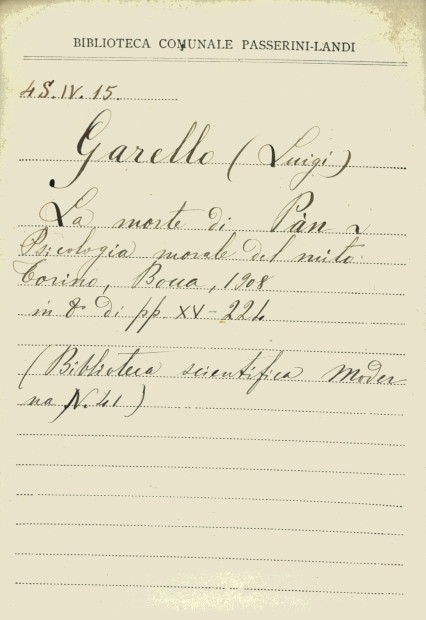 BIBLIOTECA COMUNALE PASSERINI-LANDI
4S.IV.15.
Garello (Luigi)
La morte di Pàn ~
Psicologia morale del mito.
Torino, Bocca, 1908
in 8 di pp. XV-224
(Biblioteca scientifica Moder
na N. 41)